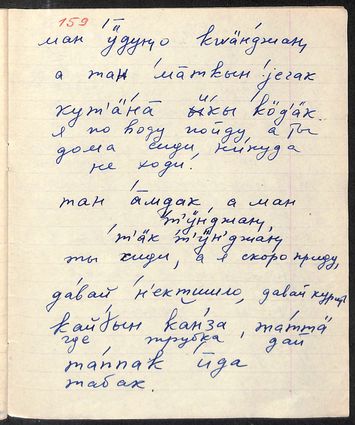 159
ман ӱдуңо кwäнджаң
а тан мāткын jегак
кут'äнā ӣкы кӧд'äк.
я по воду пойду, а ты
дома сиди, никуда
не ходи.
тан āмдак, а ман
т'ӱнджаң,
т'äк т'ӱн'джаң
ты сиди, а я скоро приду,
давай н'ектшило, давай курить
кайɣын канза, таттä
где трубка дай
таппак ӣда
табак.